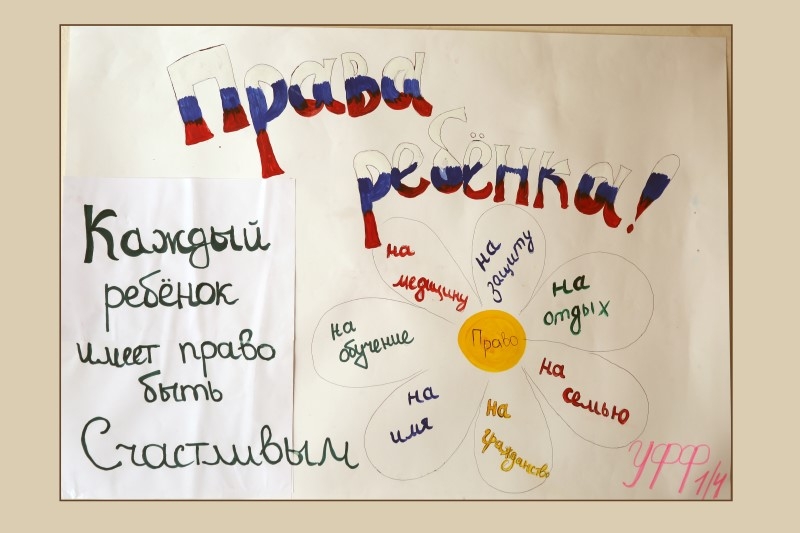 Права
ребёнка!
Каждый
ребёнок
имеет право
быть
Счастливым
Право
на
медицину
на
защиту
на
отдых
на
семью
на
гражданство
на
имя
на
обучение
УФФ
1/4